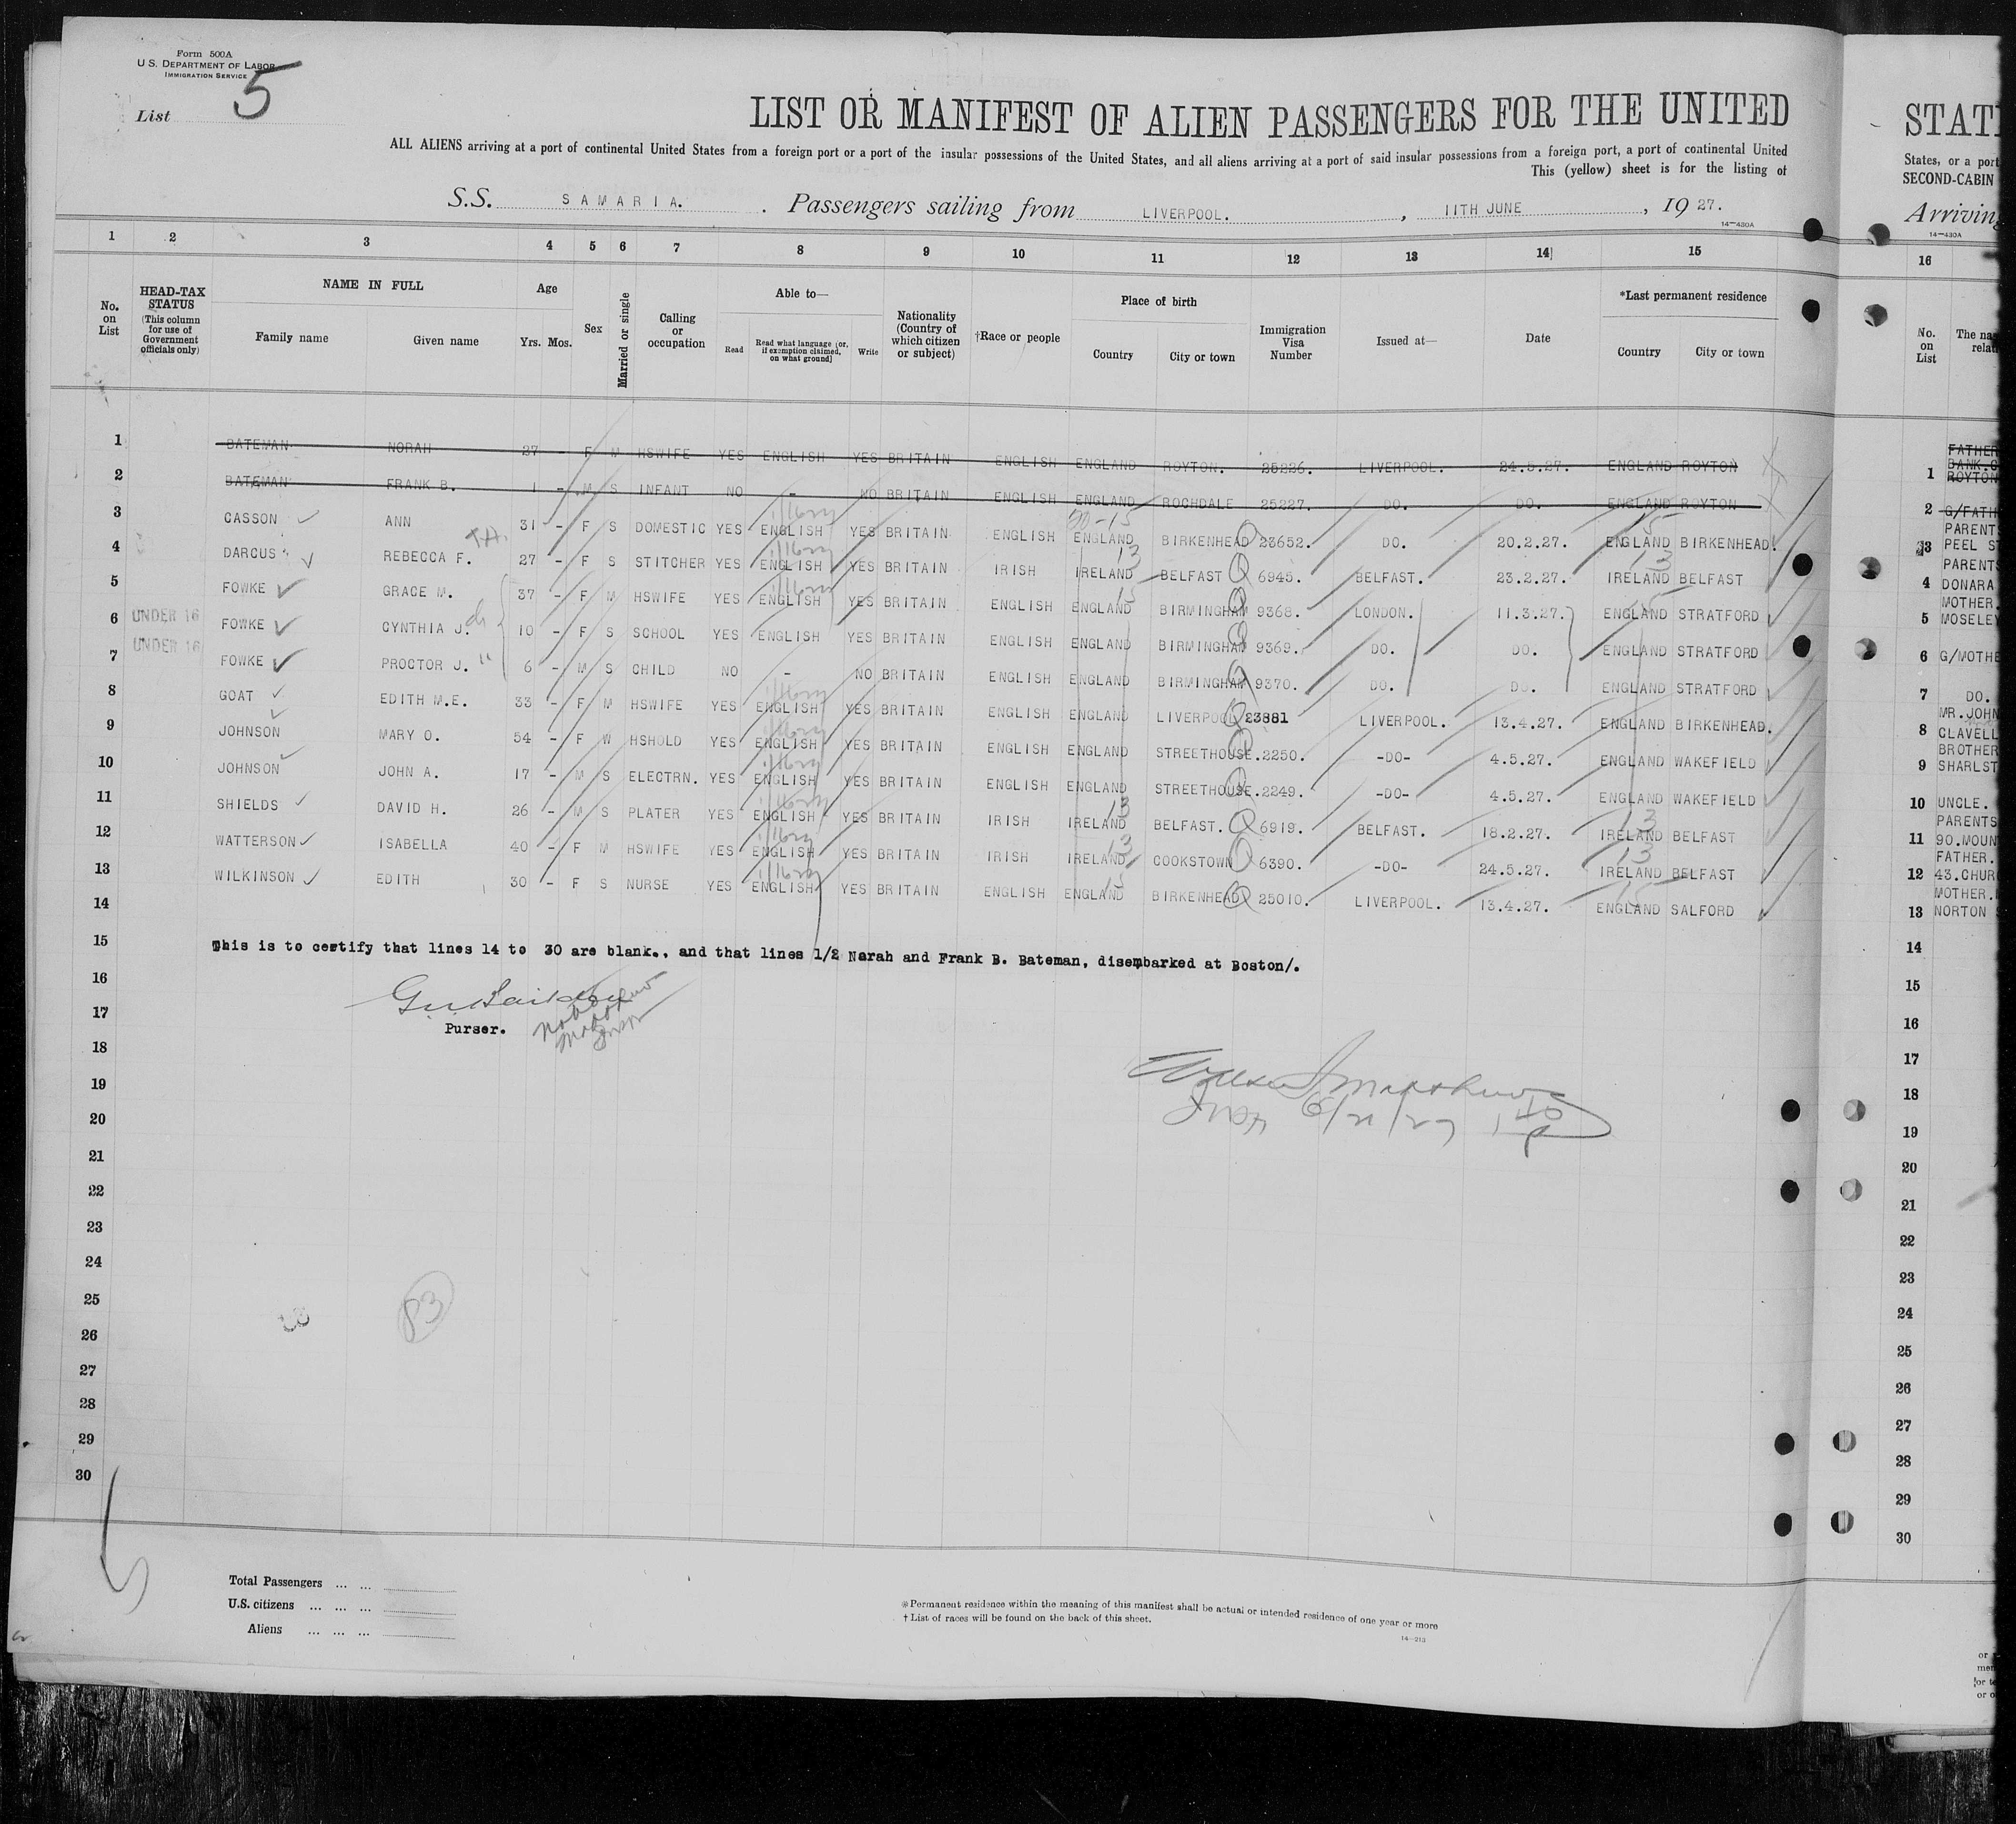 Form 500A
U.S. DEPARTMENT OF LABOR
IMMIGRATION SERVICE
List 5
LIST OR MANIFEST OF ALIEN PASSENGERS FOR THE UNITED
ALL ALIENS arriving at a port of continental United States from a foreign port or a port of the insular possessions of the United States, and all aliens arriving at a port of said insular possessions from a foreign port, a port of continental United
This (yellow) sheet is for the listing of
S.S. SAMARIA. Passengers sailing from LIVERPOOL. , 11TH JUNE , 1927.
14—430A
1 2 3 4 5 6 7 8 9 10 11 12 13 14 15
No. on List
HEAD-TAX STATUS (This column for use of Government officials only)
NAME IN FULL
Family name Given name
Age
Yrs. Mos.
Sex
Married or single
Calling or occupation
Able to—
Read
Read what language [or, if exemption claimed, on what ground]
Write
Nationality (Country of which citizen or subject)
†Race or people
Place of birth
Country City or town
Immigration Visa Number
Issued at—
Date
*Last permanent residence
Country City or town
1 BATEMAN NORAH 27 - F M HSWIFE YES ENGLISH YES BRITAIN ENGLISH ENGLAND ROYTON. 25226. LIVERPOOL. 24.5.27. ENGLAND ROYTON
2 BATEMAN FRANK B. 1 - M S INFANT NO - NO BRITAIN ENGLISH ENGLAND ROCHDALE 25227. DO. DO. ENGLAND ROYTON
3 CASSON ANN 31 - F S DOMESTIC YES ENGLISH YES BRITAIN ENGLISH ENGLAND BIRKENHEAD 23652. DO. 20.2.27. ENGLAND BIRKENHEAD.
4 DARCUS REBECCA F. 27 - F S STITCHER YES ENGLISH YES BRITAIN IRISH IRELAND BELFAST 6945. BELFAST. 23.2.27. IRELAND BELFAST
5 FOWKE GRACE M. 37 - F M HSWIFE YES ENGLISH YES BRITAIN ENGLISH ENGLAND BIRMINGHAM 9368. LONDON. 11.3.27. ENGLAND STRATFORD
6 UNDER 16 FOWKE CYNTHIA J. 10 - F S SCHOOL YES ENGLISH YES BRITAIN ENGLISH ENGLAND BIRMINGHAM 9369. DO. DO. ENGLAND STRATFORD
7 UNDER 16 FOWKE PROCTOR J. 6 - M S CHILD NO - NO BRITAIN ENGLISH ENGLAND BIRMINGHAM 9370. DO. DO. ENGLAND STRATFORD
8 GOAT EDITH M.E. 33 - F M HSWIFE YES ENGLISH YES BRITAIN ENGLISH ENGLAND LIVERPOOL 23881 LIVERPOOL. 13.4.27. ENGLAND BIRKENHEAD.
9 JOHNSON MARY O. 54 - F W HSHOLD YES ENGLISH YES BRITAIN ENGLISH ENGLAND STREETHOUSE. 2250. -DO- 4.5.27. ENGLAND WAKEFIELD
10 JOHNSON JOHN A. 17 - M S ELECTRN. YES ENGLISH YES BRITAIN ENGLISH ENGLAND STREETHOUSE. 2249. -DO- 4.5.27. ENGLAND WAKEFIELD
11 SHIELDS DAVID H. 26 - M S PLATER YES ENGLISH YES BRITAIN IRISH IRELAND BELFAST. 6919. BELFAST. 18.2.27. IRELAND BELFAST
12 WATTERSON ISABELLA 40 - F M HSWIFE YES ENGLISH YES BRITAIN IRISH IRELAND COOKSTOWN 6390. -DO- 24.5.27. IRELAND BELFAST
13 WILKINSON EDITH 30 - F S NURSE YES ENGLISH YES BRITAIN ENGLISH ENGLAND BIRKENHEAD 25010. LIVERPOOL. 13.4.27. ENGLAND SALFORD
14
15 This is to certify that lines 14 to 30 are blank., and that lines 1/2 Norah and Frank B. Bateman, disembarked at Boston/.
16
17 Purser.
18
19
20
6/21/27
21
22
23
24
25
83
26
27
28
29
30
Total Passengers ... ...
U.S. citizens ... ... ...
Aliens ... ... ...
*Permanent residence within the meaning of this manifest shall be actual or intended residence of one year or more
†List of races will be found on the back of this sheet.
14—213
STAT
States, or a port
SECOND-CABIN
Arriving
14—430A
16
No. on List
The na
relat
1 FATHER
BANK.
ROYTON
2 G/FATH
PARENTS
3 PEEL S
PARENTS
4 DONARA
MOTHER.
5 MOSELEY
6 G/MOTHE
7 DO.
MR.JOHN
8 CLAVELL
BROTHER
9 SHARLST
10 UNCLE.
PARENTS
11 90.MOUN
FATHER.
12 43.CHUR
MOTHER.
13 NORTON
14
15
16
17
18
19
20
21
22
23
24
25
26
27
28
29
30